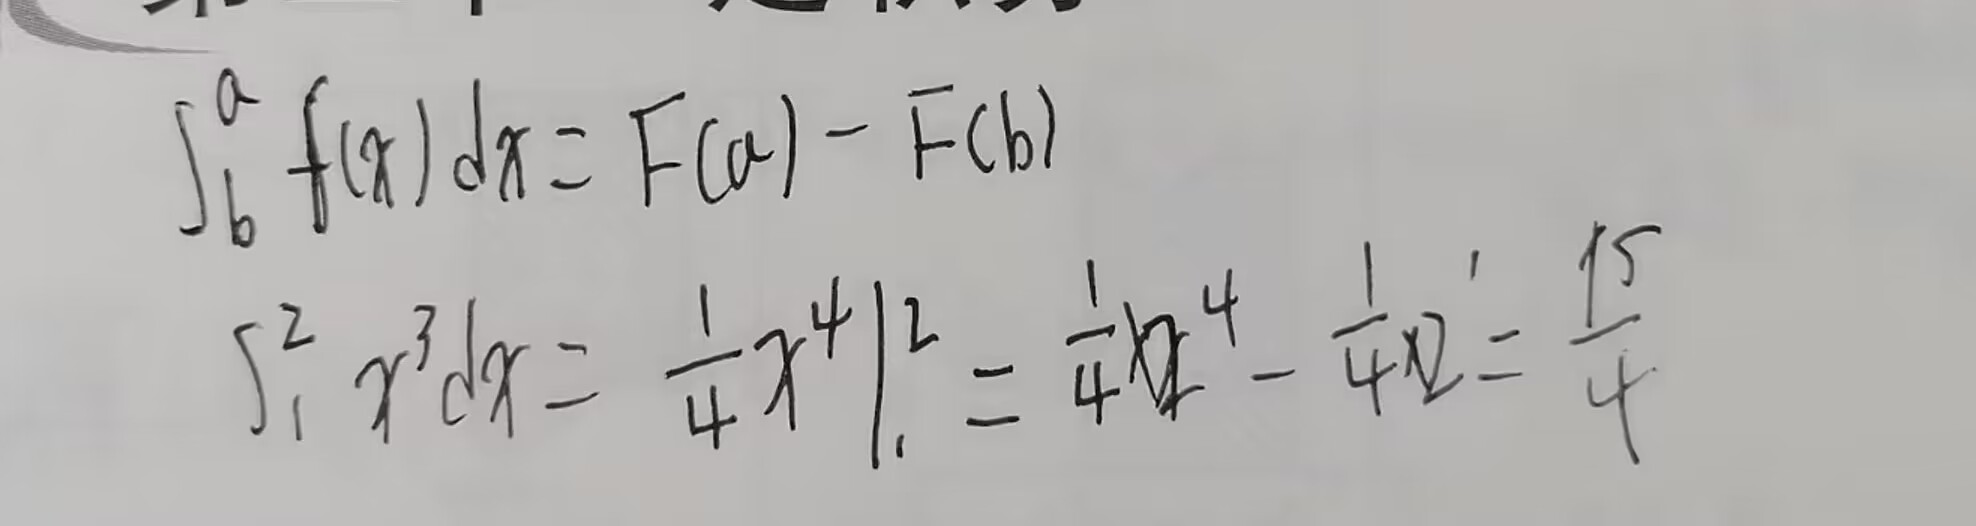 ∫_b^a f(x) dx = F(a) - F(b)
∫_1^2 x^3 dx = 1/4 x^4 |_1^2 = 1/4 × 2^4 - 1/4 × 2^1 = 15/4